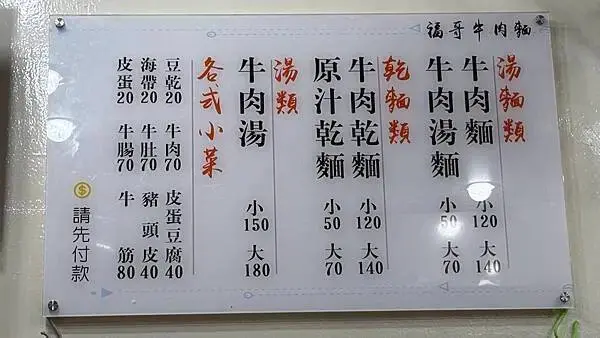 福哥牛肉麵
湯麵類
牛肉麵 小120 大140
牛肉湯麵 小50 大70
乾麵類
牛肉乾麵 小120 大140
原汁乾麵 小50 大70
湯類
牛肉湯 小150 大180
各式小菜
豆乾20 牛肉70 皮蛋豆腐40
海帶20 牛肚70 豬頭皮40
皮蛋20 牛腸70 牛筋80
$請先付款